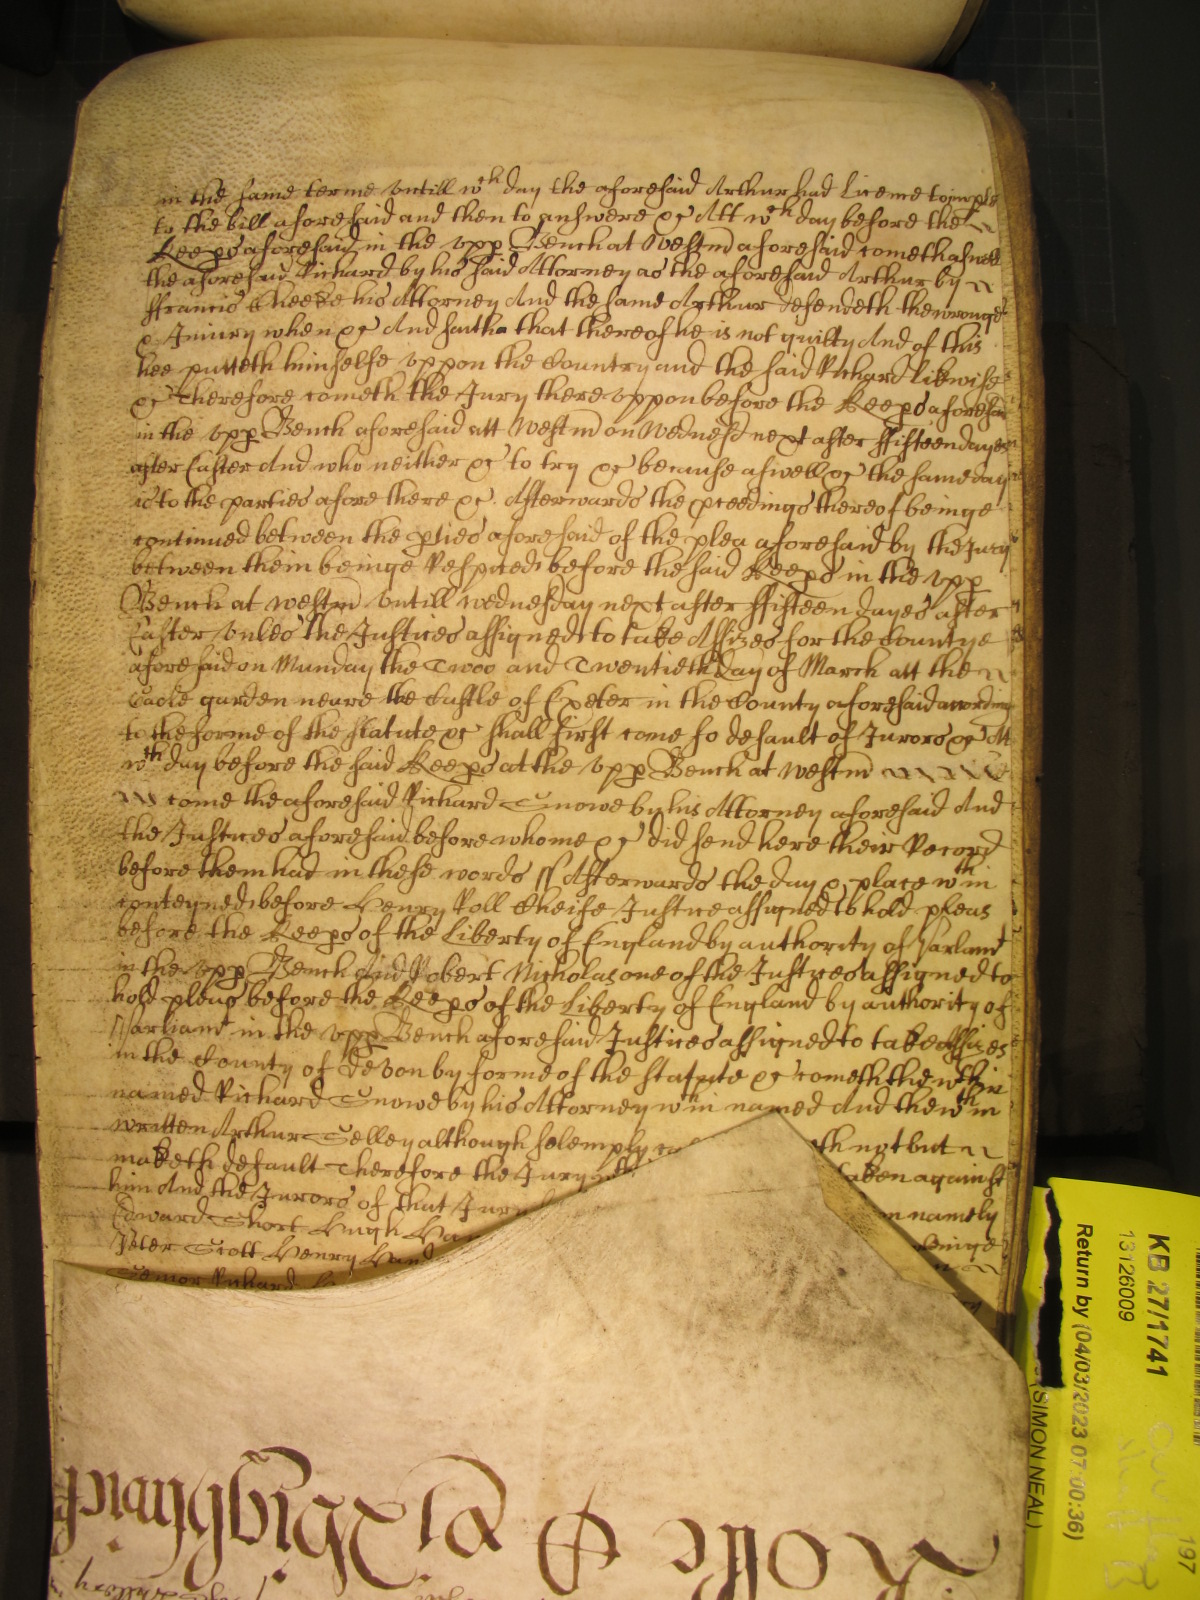 in the same terme untill wch day the aforesaid Arthur had licence to imple
to the bill aforesaid and then to answere &c Att wch day before the
Keeps aforesaid in the upp Bench at Westm aforesaid cometh aswell
the aforesaid Richard by his said Attorney as the aforesaid Arthur by
ffrancis Cheeke his Attorney And the same Arthur defendeth the wronge
& Iniury when &c And saith that thereof he is not guilty And of this
hee putteth himselfe uppon the Country and the said Richard likewise
&c Therefore cometh the Jury thereuppon before the Keeps aforesaid
in the upp Bench aforesaid att Westm on Wednesd next after ffifteen dayes
after Easter And who neither &c to try &c because aswell &c the same day
is to the parties afore there &c. Afterwards the pceedings thereof beinge
continued between the pties aforesaid of the plea aforesaid by the Jury
between them beinge Respited before the said Keeps in the upp
Bench at westm untill wednesday next after ffifteen dayes after
Easter unles the Justices assigned to take Assizes for the Countye
aforesaid on Munday the Twoo and Twentieth day of March att the
garden neare the Castle of Exeter in the County aforesaid according
to the forme of the statute &c shall first come so default of Jurors &c Att
wch day before the said Keeps at the upp Bench at westm
come the aforesaid Richard Snowe by his Attorney aforesaid And
the Justices aforesaid before whome &c did send here their Record
before them had in these words ss Afterwards the day & place wthin
conteyned before Henry Roll Cheife Justice assigned to hold pleas
before the Keeps of the Liberty of England by authority of Parliamt
in the upp Bench And Robert Nicholas one of the Justices assigned to
hold pleas before the Keeps of the Liberty of England by authority of
Parliamt in the upp Bench aforesaid Justices assigned to take Assizes
in the County of Devon by forme of the statute &c cometh the wthin
named Richard Snowe by his Attorney wthin named And the wthin
written Arthur Selley although solemply not but
maketh default Therefore the Jury taken against
him And the Jurors of that Jury namely
Edward Short Hugh
Peter Scott Henry
Richard
Rolle &
KB 27/1741
13126009
Return by (04/03/2023 07:00:36)
(SIMON NEAL)
197